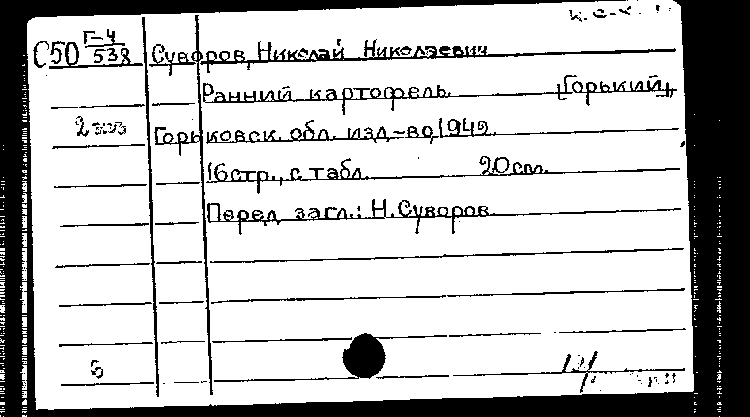 С50 Г-4/538 Суворов, Николай Николаевич
Ранний картофель. [Горький],
2 экз Горьковск. обл. изд-во, 1942.
16 стр., с табл. 20 см.
Перед загл.: Н. Суворов.